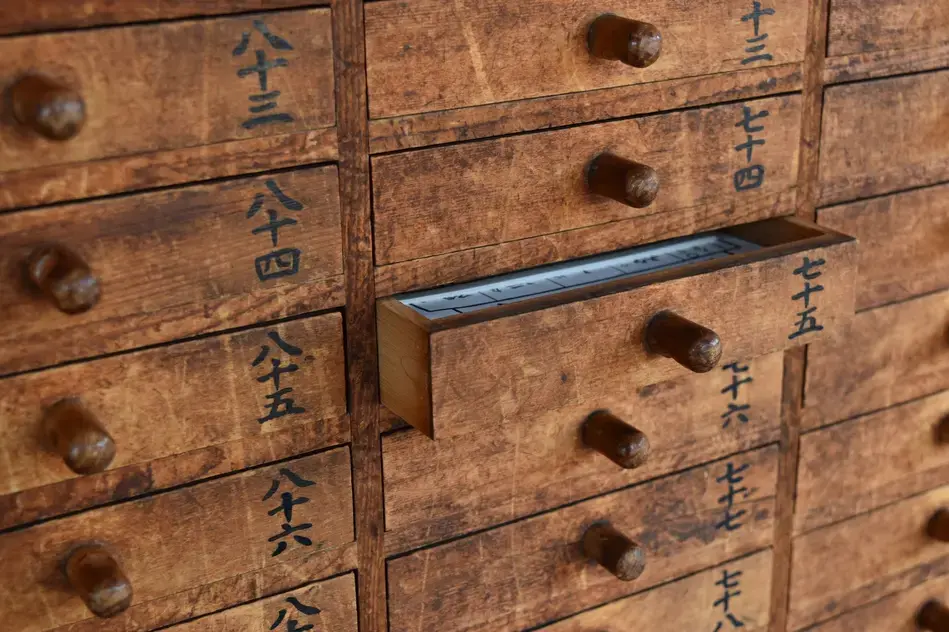 八十三
八十四
八十五
八十六
八
十三
七十四
七十五
七十六
七十七
七十八